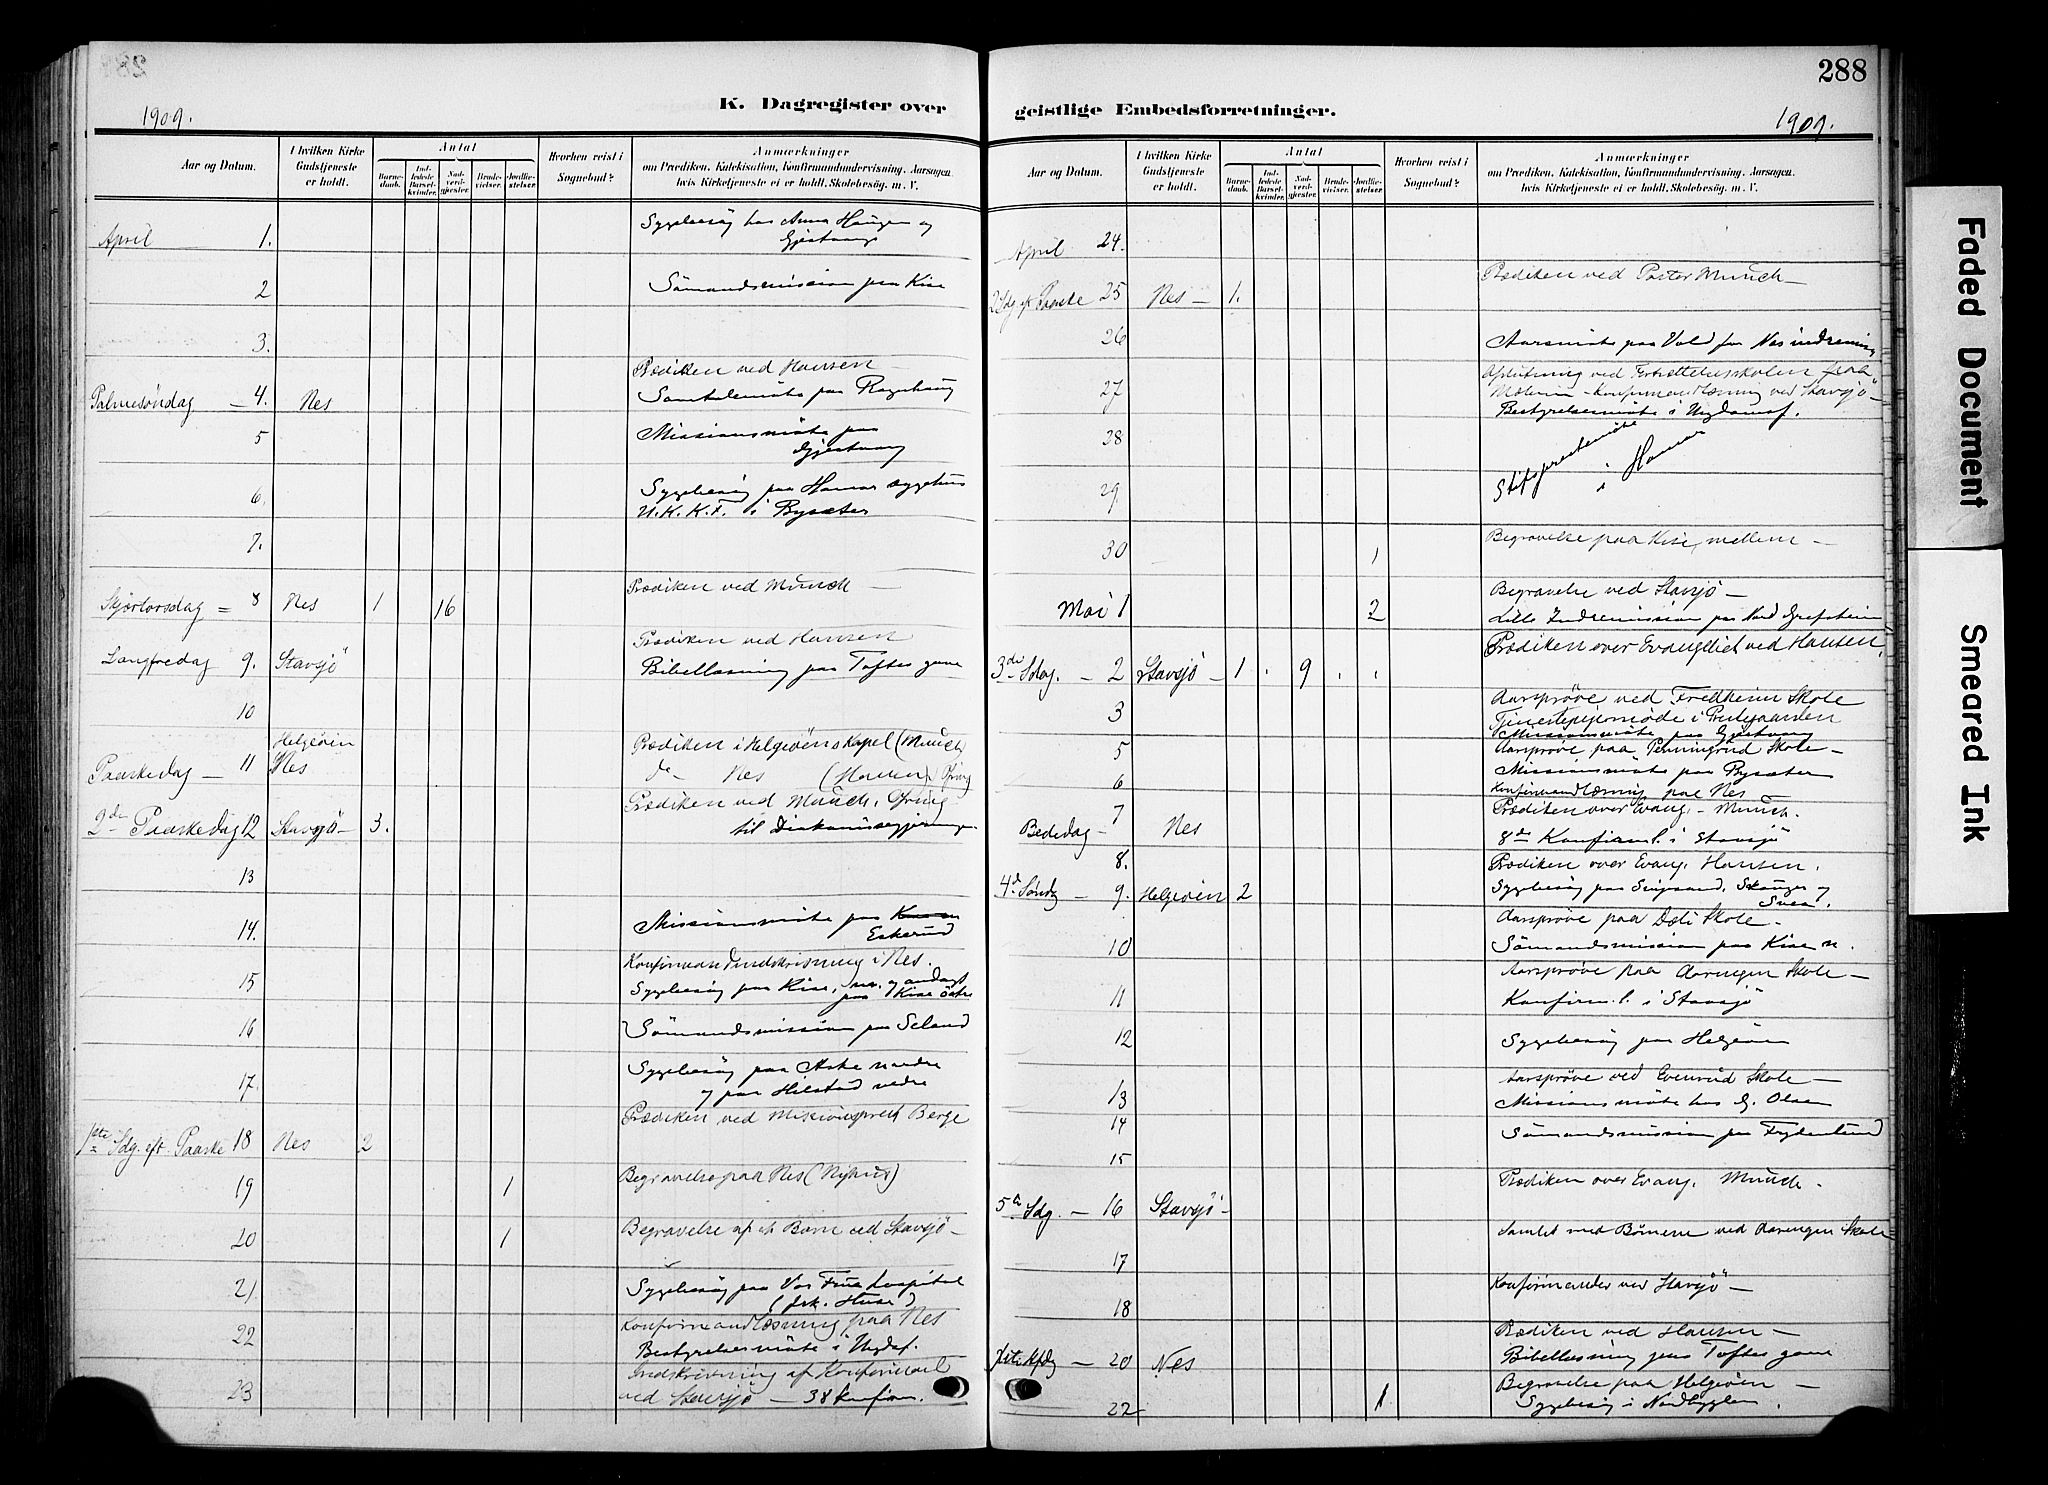 288
K. Dagregister over geistlige Embedsforretninger.
1909.
1909.
Aar og Datum.
I hvilken Kirke Gudstjeneste er holdt.
Antal
Barnedaab.
Indledede Barselkvinder.
Nadverdgjester.
Brudevielser.
Jordfæstelser.
Hvorhen reist i Sognebud?
Anmærkninger
om Prædiken, Katekisation, Konfirmandundervisning, Aarsagen,
hvis Kirketjeneste ei er holdt, Skolebesøg, m. V.
April 1. Sygebesøg hos Anna Haugen og
Gjestvang
2 Sømandsmission paa Kise
3.
Prædiken ved Hansen
Palmesøndag – 4. Nes Samtalemøte paa
5 Missionsmøte paa
Gjestvang
6. Sygebesøg paa Hamar sygehus
U.K.K.F. i Bysæter
7.
Skjærtorsdag = 8 Nes 1 16 Prædiken ved Munch –
Prædiken ved Hansen
Langfredag 9. Stavsjö Bibellæsning paa Toftes gave
10
Paaskedag – 11 Helgeöen Nes Prædiken i Helgeöens Kapel (Munch)
do – Nes (Hansen). Ofring
2den Paaskedag 12 Stavsjö – 3. Prædiken ved Munch. Ofring
til
13
14. Missionsmøte paa
Eskerud
15 Konfirmandindskrivning i Nes.
Sygebesøg paa Kise, og andagt
paa Kise östre
16 Sømandsmission paa Seland
17. Sygebesøg paa Aske nordre
og paa Hilstad nedre
1ste Sdg. eft. Paaske 18 Nes 2 Prædiken ved Missionsprest Berge
19 1 Begravelse paa Nes
20 1 Begravelse af et Barn ved Stavsjö –
21 Sygebesøg paa Vor Frue hospital
22 Konfirmandlæsning paa Nes
Bestyrelsesmøte i Ungdsf.
23 Indskrivning af Konfirmant
ved Stavsjö – 38 konfirm.
Aar og Datum.
I hvilken Kirke Gudstjeneste er holdt.
Antal
Barnedaab.
Indledede Barselkvinder.
Nadverdgjester.
Brudevielser.
Jordfæstelser.
Hvorhen reist i Sognebud?
Anmærkninger
om Prædiken, Katekisation, Konfirmandundervisning, Aarsagen,
hvis Kirketjeneste ei er holdt, Skolebesøg, m. V.
April 24.
2 Sdg. eft. Paaske 25 Nes – 1. Prædiken ved Pastor Munch –
26 Aarsmøte paa Vold for Nes indremis
27 Afslutning ved Fortsættelsesskolen paa
Konfirmandlæsning ved Stavsjö –
Bestyrelsesmøte i Ungdomsf.
28 Stiftsprestemøte
29 i Hamar
30 1 Begravelse paa Kise, mellem –
Begravelse ved Stavsjö –
Mai 1 2 Lille Indremission paa Nord
3die Sdag. – 2 Stavsjö – 1 . 9 . . Prædiken over Evangeliet ved Hansen.
3 Aarsprøve ved Fredheim Skole
i Prestgaarden
Missionsmøte paa Gjestvang
5 Aarsprøve paa Penningrud Skole –
Missionsmøte paa Bysæter
6 Konfirmandlæsning paa Nes
Bededag – 7 Nes Prædiken over Evang. – Munch.
8de Konfirm.l. i Stavsjö
8.
4de Søndg – 9. Helgeöen 2 Prædiken over Evang. Hansen.
Sygebesøg paa
10 Aarsprøve paa Deli Skole –
Sømandsmission paa Kise n.
11 Aarsprøve paa Aarengen Skole –
Konfirm.l. i Stavsjö
12 Sygebesøg paa Helgeöen
13 Aarsprøve ved Evenrud Skole –
Missionsmøte hos G. Olsen
14 Sømandsmission paa
15
5te Sdg. – 16 Stavsjö – Prædiken over Evang. Munch.
17 Samlet med Børnene ved Aarengen Skole
18 Konfirmander ved Stavsjö –
– 20 Nes Prædiken ved Hansen –
Bibellæsning paa Toftes gave
22 1 Begravelse paa Helgeöen –
Sygebesøg i Nordbygden.
Faded Document
Smeared Ink